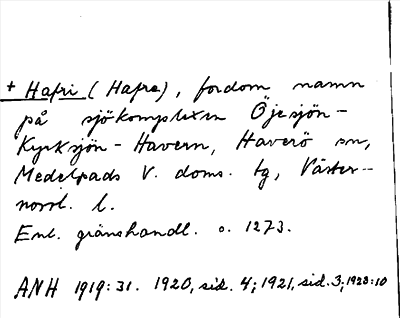 + Hafri (Hafre), fordom namn
på sjökomplexen Öjesjön-
Kyrksjön - Havern, Haverö sn,
Medelpads V. doms. tg, Väster-
norrl. l.
Enl. gränshandl. o. 1273.
ANH 1919:31. 1920, sid. 4; 1921, sid. 3; 1928:10